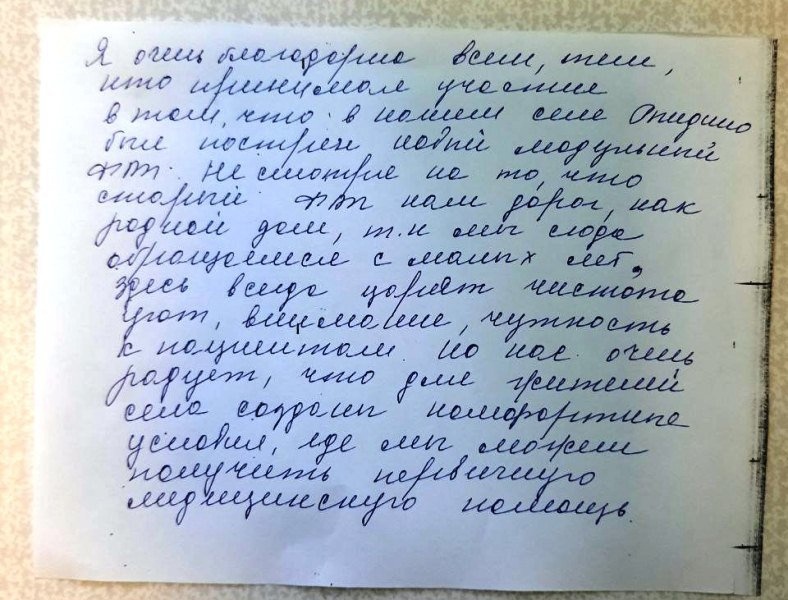 Я очень благодарна всем, тем,
кто принимал участие
в том, что в нашем селе
был построен новый модульный
ФАП. Не смотря на то, что
старый ФАП нам дорог, как
родной дом, т.к мы сюда
обращаемся с малых лет,
здесь всегда царят чистота
уют, внимание, чуткость
к пациентам. но нас очень
радует, что для жителей
села созданы комфортные
условия, где мы можем
получить первичную
медицинскую помощь.